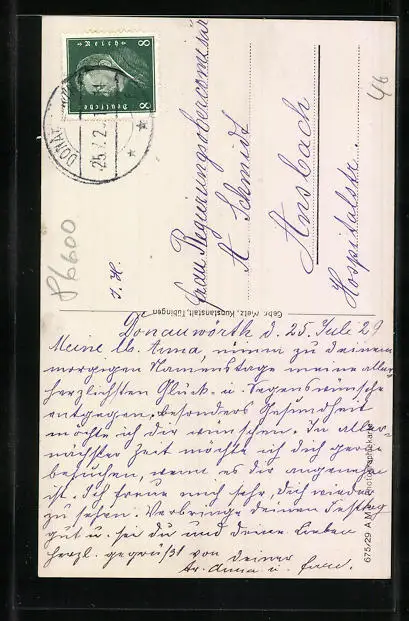 Frau Regierungsobersekretär
A Schmidt
Ansbach
Hospitalstr.
S. H.
Donauwörth d. 25. Juli 29
Meine lb. Anna, nimm zu deinem
morgigen Namenstage meine aller-
herzlichsten Glück- u. Segenswünsche
entgegen, besonders Gesundheit
möchte ich dir wünschen. In aller-
nächster Zeit möchte ich dich gerne
besuchen, wenn es dir angenehm
ist. Ich freue mich sehr, Dich wieder
zu sehen. Verbringe deinen Festtag
gut u. sei du und deine Lieben
herzl. gegrüßt von deiner
Anna u.
Gebr. Metz, Kunstanstalt, Tübingen
675/29 A M Photographiekarte
Deutsches Reich
8 8
25.7.2
P6600